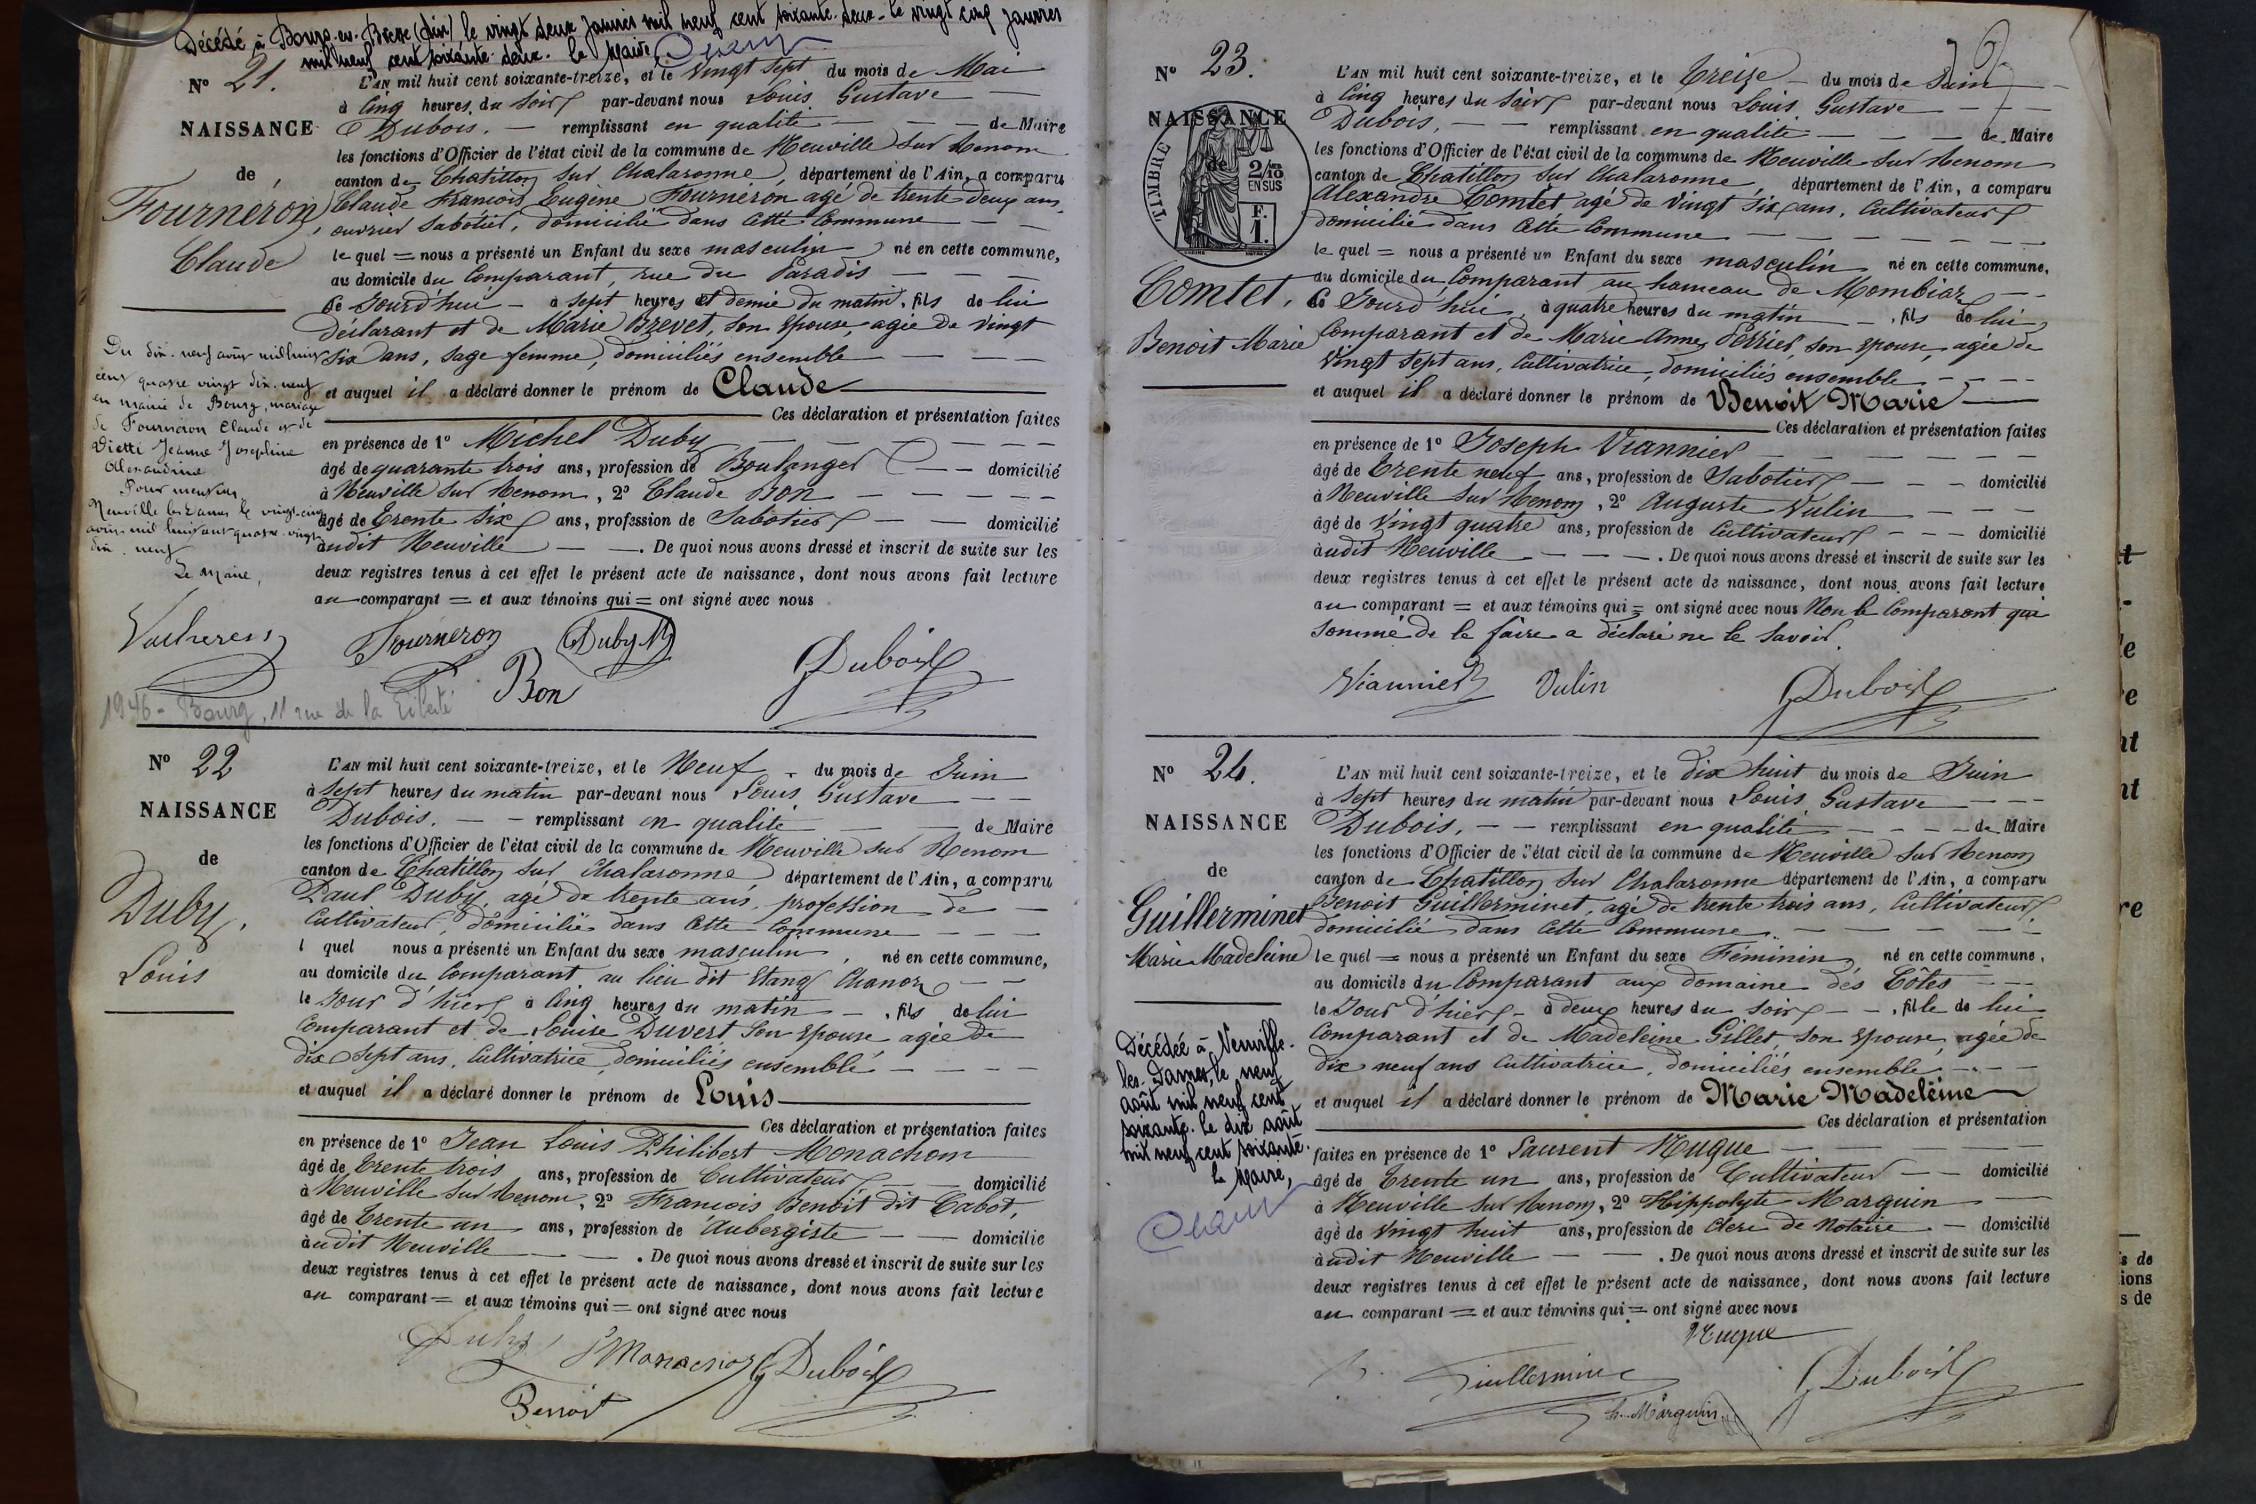 Décédé à Bourg-en-Bresse (Ain) le vingt deux Janvier mil neuf cent soixante-deux - le vingt cinq janvier
mil neuf cent soixante-deux. Le Maire
N° 21.
NAISSANCE
de
Fourneron
Claude
L'AN mil huit cent soixante-treize, et le Vingt Sept du mois de Mai
à Cinq heures du Soir par-devant nous Louis Gustave
Dubois. — remplissant en qualité — de Maire
les fonctions d'Officier de l'état civil de la commune de Neuville sur Renom
canton de Chatillon sur Chalaronne, département de l'Ain, a comparu
Claude François Eugène Fourneron agé de trente deux ans,
ouvrier Sabotier, domicilié dans cette Commune
le quel = nous a présenté un Enfant du sexe masculin né en cette commune,
au domicile du Comparant, rue du Paradis
ce Jourd'hui — à sept heures et demie du matin, fils de lui
déclarant et de Marie Brevet, son épouse, agée de vingt
six ans, sage femme, domiciliés ensemble
et auquel il a déclaré donner le prénom de Claude
Ces déclaration et présentation faites
en présence de 1° Michel Duby
âgé de quarante trois ans, profession de Boulanger — domicilié
à Neuville sur Renom, 2° Claude Bon
âgé de Trente Six ans, profession de Sabotier — domicilié
audit Neuville — . De quoi nous avons dressé et inscrit de suite sur les
deux registres tenus à cet effet le présent acte de naissance, dont nous avons fait lecture
au comparant = et aux témoins qui = ont signé avec nous
Du dix-neuf avril mil huit
cent quatre vingt dix-neuf
en mairie de Bourg, mariage
de Fourneron Claude et de
Vietti Jeanne Josephine
Alexandrine
Pour mention
Neuville les Dames le vingt-cinq
avril mil huit cent quatre-vingt
dix-neuf
Le Maire,
Fourneron Duby M
Bon Dubois
1946 - Bourg, 11 rue de la Liberté
N° 22
NAISSANCE
de
Duby,
Louis
L'AN mil huit cent soixante-treize, et le Neuf du mois de Juin
à Sept heures du matin par-devant nous Louis Gustave
Dubois. — remplissant en qualité — de Maire
les fonctions d'Officier de l'état civil de la commune de Neuville sur Renom
canton de Chatillon sur Chalaronne département de l'Ain, a comparu
Paul Duby, agé de trente ans, profession de
Cultivateur, domicilié dans cette Commune
l quel nous a présenté un Enfant du sexe masculin, né en cette commune,
au domicile du Comparant au lieu dit Etang Chanon
le Jour d'hier à Cinq heures du matin — , fils de lui
Comparant et de Louise Duvert son épouse agée de
dix Sept ans, Cultivatrice, domiciliés ensemble
et auquel il a déclaré donner le prénom de Louis
Ces déclaration et présentation faites
en présence de 1° Jean Louis Philibert Monachon
âgé de Trente trois ans, profession de Cultivateur — domicilié
à Neuville sur Renom, 2° François Benoit dit Cabot,
âgé de Trente un ans, profession de Aubergiste — domicilié
audit Neuville — . De quoi nous avons dressé et inscrit de suite sur les
deux registres tenus à cet effet le présent acte de naissance, dont nous avons fait lecture
au comparant = et aux témoins qui = ont signé avec nous
Duby Monachon Dubois
Benoit
N° 23.
NAISSANCE
de
TIMBRE
2/10
EN SUS
F.
1.
Comtet,
Benoit Marie
L'AN mil huit cent soixante-treize, et le Treize du mois de Juin
à Cinq heures du Soir par-devant nous Louis Gustave
Dubois, — remplissant en qualité — de Maire
les fonctions d'Officier de l'état civil de la commune de Neuville sur Renom
canton de Chatillon sur Chalaronne, département de l'Ain, a comparu
Alexandre Comtet agé de vingt six ans, Cultivateur
domicilié dans Cette Commune
le quel = nous a présenté un Enfant du sexe masculin né en cette commune,
au domicile du Comparant au hameau de Mombiaz
ce Jourd'hui, à quatre heures du matin — , fils de lui
Comparant et de Marie Anne Perrier, son épouse, agée de
vingt sept ans, Cultivatrice, domiciliés ensemble
et auquel il a déclaré donner le prénom de Benoit Marie
Ces déclaration et présentation faites
en présence de 1° Joseph Viannier
âgé de Trente neuf ans, profession de Sabotier — domicilié
à Neuville sur Renom, 2° Auguste Vulin
âgé de Vingt quatre ans, profession de Cultivateur — domicilié
audit Neuville — . De quoi nous avons dressé et inscrit de suite sur les
deux registres tenus à cet effet le présent acte de naissance, dont nous avons fait lecture
au comparant = et aux témoins qui = ont signé avec nous Non le Comparant qui
sommé de le faire a déclaré ne le savoir.
Viannier Vulin Dubois
N° 24.
NAISSANCE
de
Guillerminet
Marie Madeleine
L'AN mil huit cent soixante-treize, et le dix huit du mois de Juin
à Sept heures du matin par-devant nous Louis Gustave
Dubois, — remplissant en qualité — de Maire
les fonctions d'Officier de l'état civil de la commune de Neuville sur Renom
canton de Chatillon sur Chalaronne département de l'Ain, a comparu
Benoit Guillerminet, agé de trente trois ans, Cultivateur
domicilié dans Cette Commune
le quel = nous a présenté un Enfant du sexe Féminin né en cette commune,
au domicile du Comparant aux domaine des Côtes
le Jour d'hier — à deux heures du soir — , fille de lui
Comparant et de Madeleine Gillet, son épouse, agée de
dix neuf ans Cultivatrice, domiciliés ensemble
et auquel il a déclaré donner le prénom de Marie Madeleine
Ces déclaration et présentation
faites en présence de 1° Laurent Nugue
âgé de Trente un ans, profession de Cultivateur — domicilié
à Neuville sur Renom, 2° Hippolyte Marguin
âgé de Vingt huit ans, profession de Clerc de Notaire — domicilié
audit Neuville — . De quoi nous avons dressé et inscrit de suite sur les
deux registres tenus à cet effet le présent acte de naissance, dont nous avons fait lecture
au comparant = et aux témoins qui = ont signé avec nous
Décédée à Neuville-
les-Dames, le neuf
août mil neuf cent
soixante. Le dix août
mil neuf cent soixante.
Le Maire,
Nugue
Guillerminet Dubois
h. Marguin